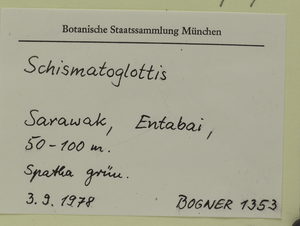 Botanische Staatssammlung München
Schismatoglottis
Sarawak, Entabai,
50-100 m.
Spatha grün.
3.9.1978 BOGNER 1353